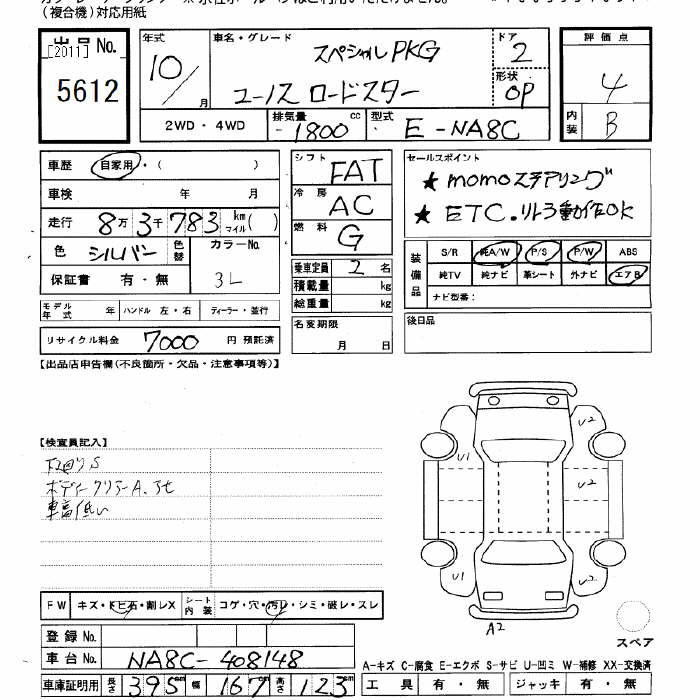 (複合機)対応用紙
出品No.
[2011]
5612
年式 10/ 月
車名・グレード スペシャルPKG
ユーノス ロードスター
ドア 2
形状 OP
2WD・4WD 排気量 1800 cc 型式 E-NA8C
評価点 4
内装 B
車歴 自家用・( )
車検 年 月
走行 8万3千783 km マイル( )
色 シルバー 色替 カラーNo. 3L
保証書 有・無
モデル年式 年 ハンドル 左・右 ディーラー・並行
リサイクル料金 7000 円 預託済
シフト FAT
冷房 AC
燃料 G
乗車定員 2 名
積載量 kg
総重量 kg
名変期限 月 日
セールスポイント
★ momoステアリング
★ ETC.リトラ動作OK
装備品 S/R 純A/W P/S P/W ABS
純TV 純ナビ 革シート 外ナビ エアB
ナビ型番:
後日品
【出品店申告欄(不良箇所・欠品・注意事項等)】
【検査員記入】
下回りS
ボディークリアーA.
車高低い
FW キズ・トビ石・割レX シート内装 コゲ・穴・汚レ・シミ・破レ・スレ
登録No.
車台No. NA8C-408148
車庫証明用 長さ 395 cm 幅 167 cm 高さ 123 cm
U2
U1
U2
U1
U2
A2
スペア
A-キズ C-腐食 E-エクボ S-サビ U-凹ミ W-補修 XX-交換済
工具 有・無 ジャッキ 有・無